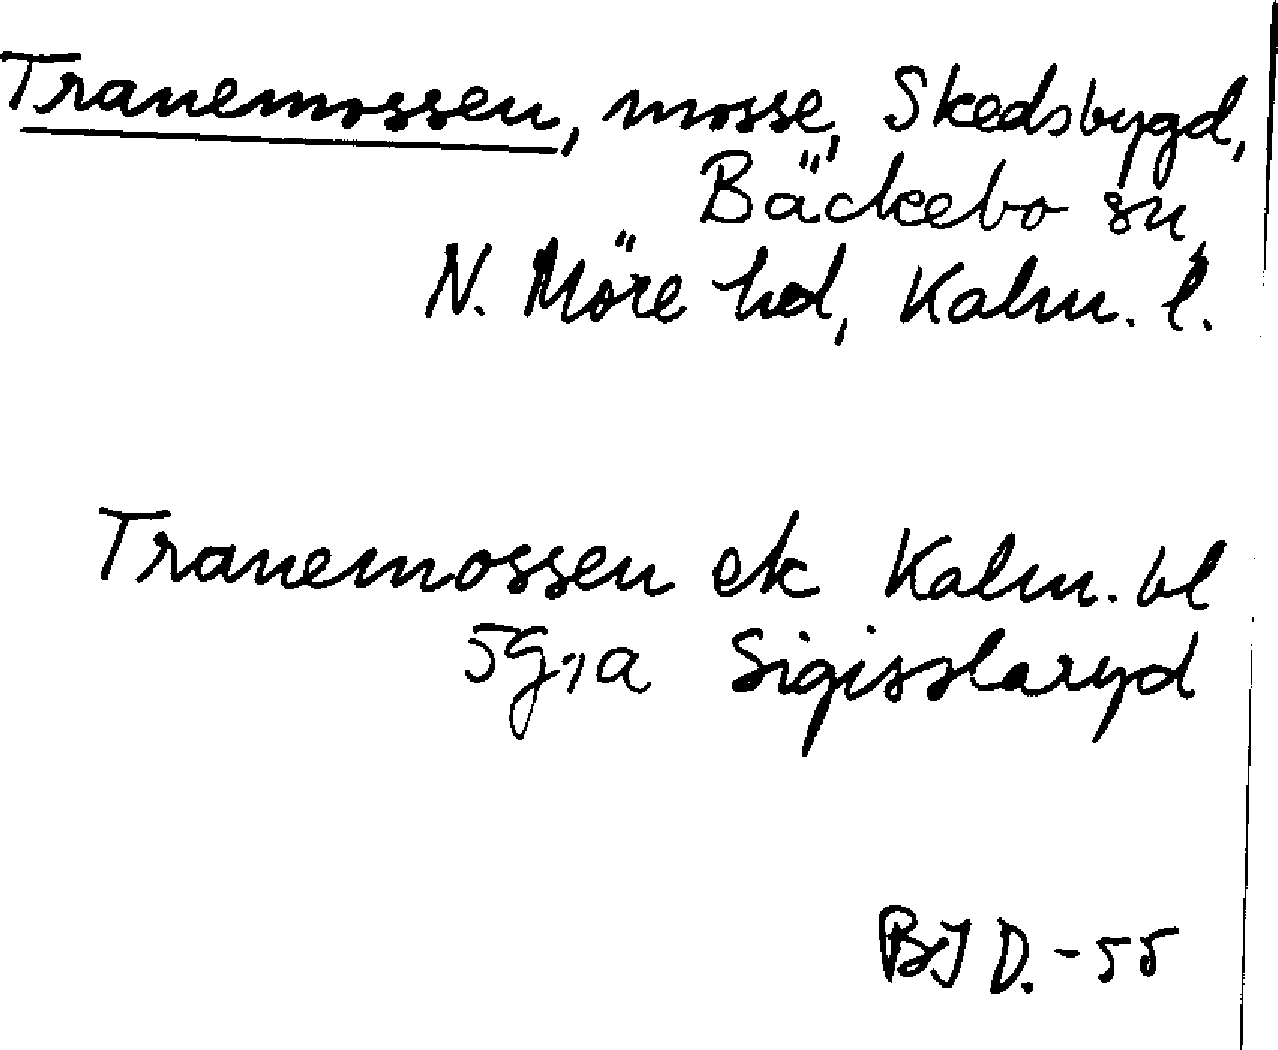 Tranemossen, mosse, Skedsbygd,
Bäckebo sn,
N. Möre hd, Kalm. l.
Tranemossen ek Kalm. bl
5G;a Sigisslaryd
BJD.-55